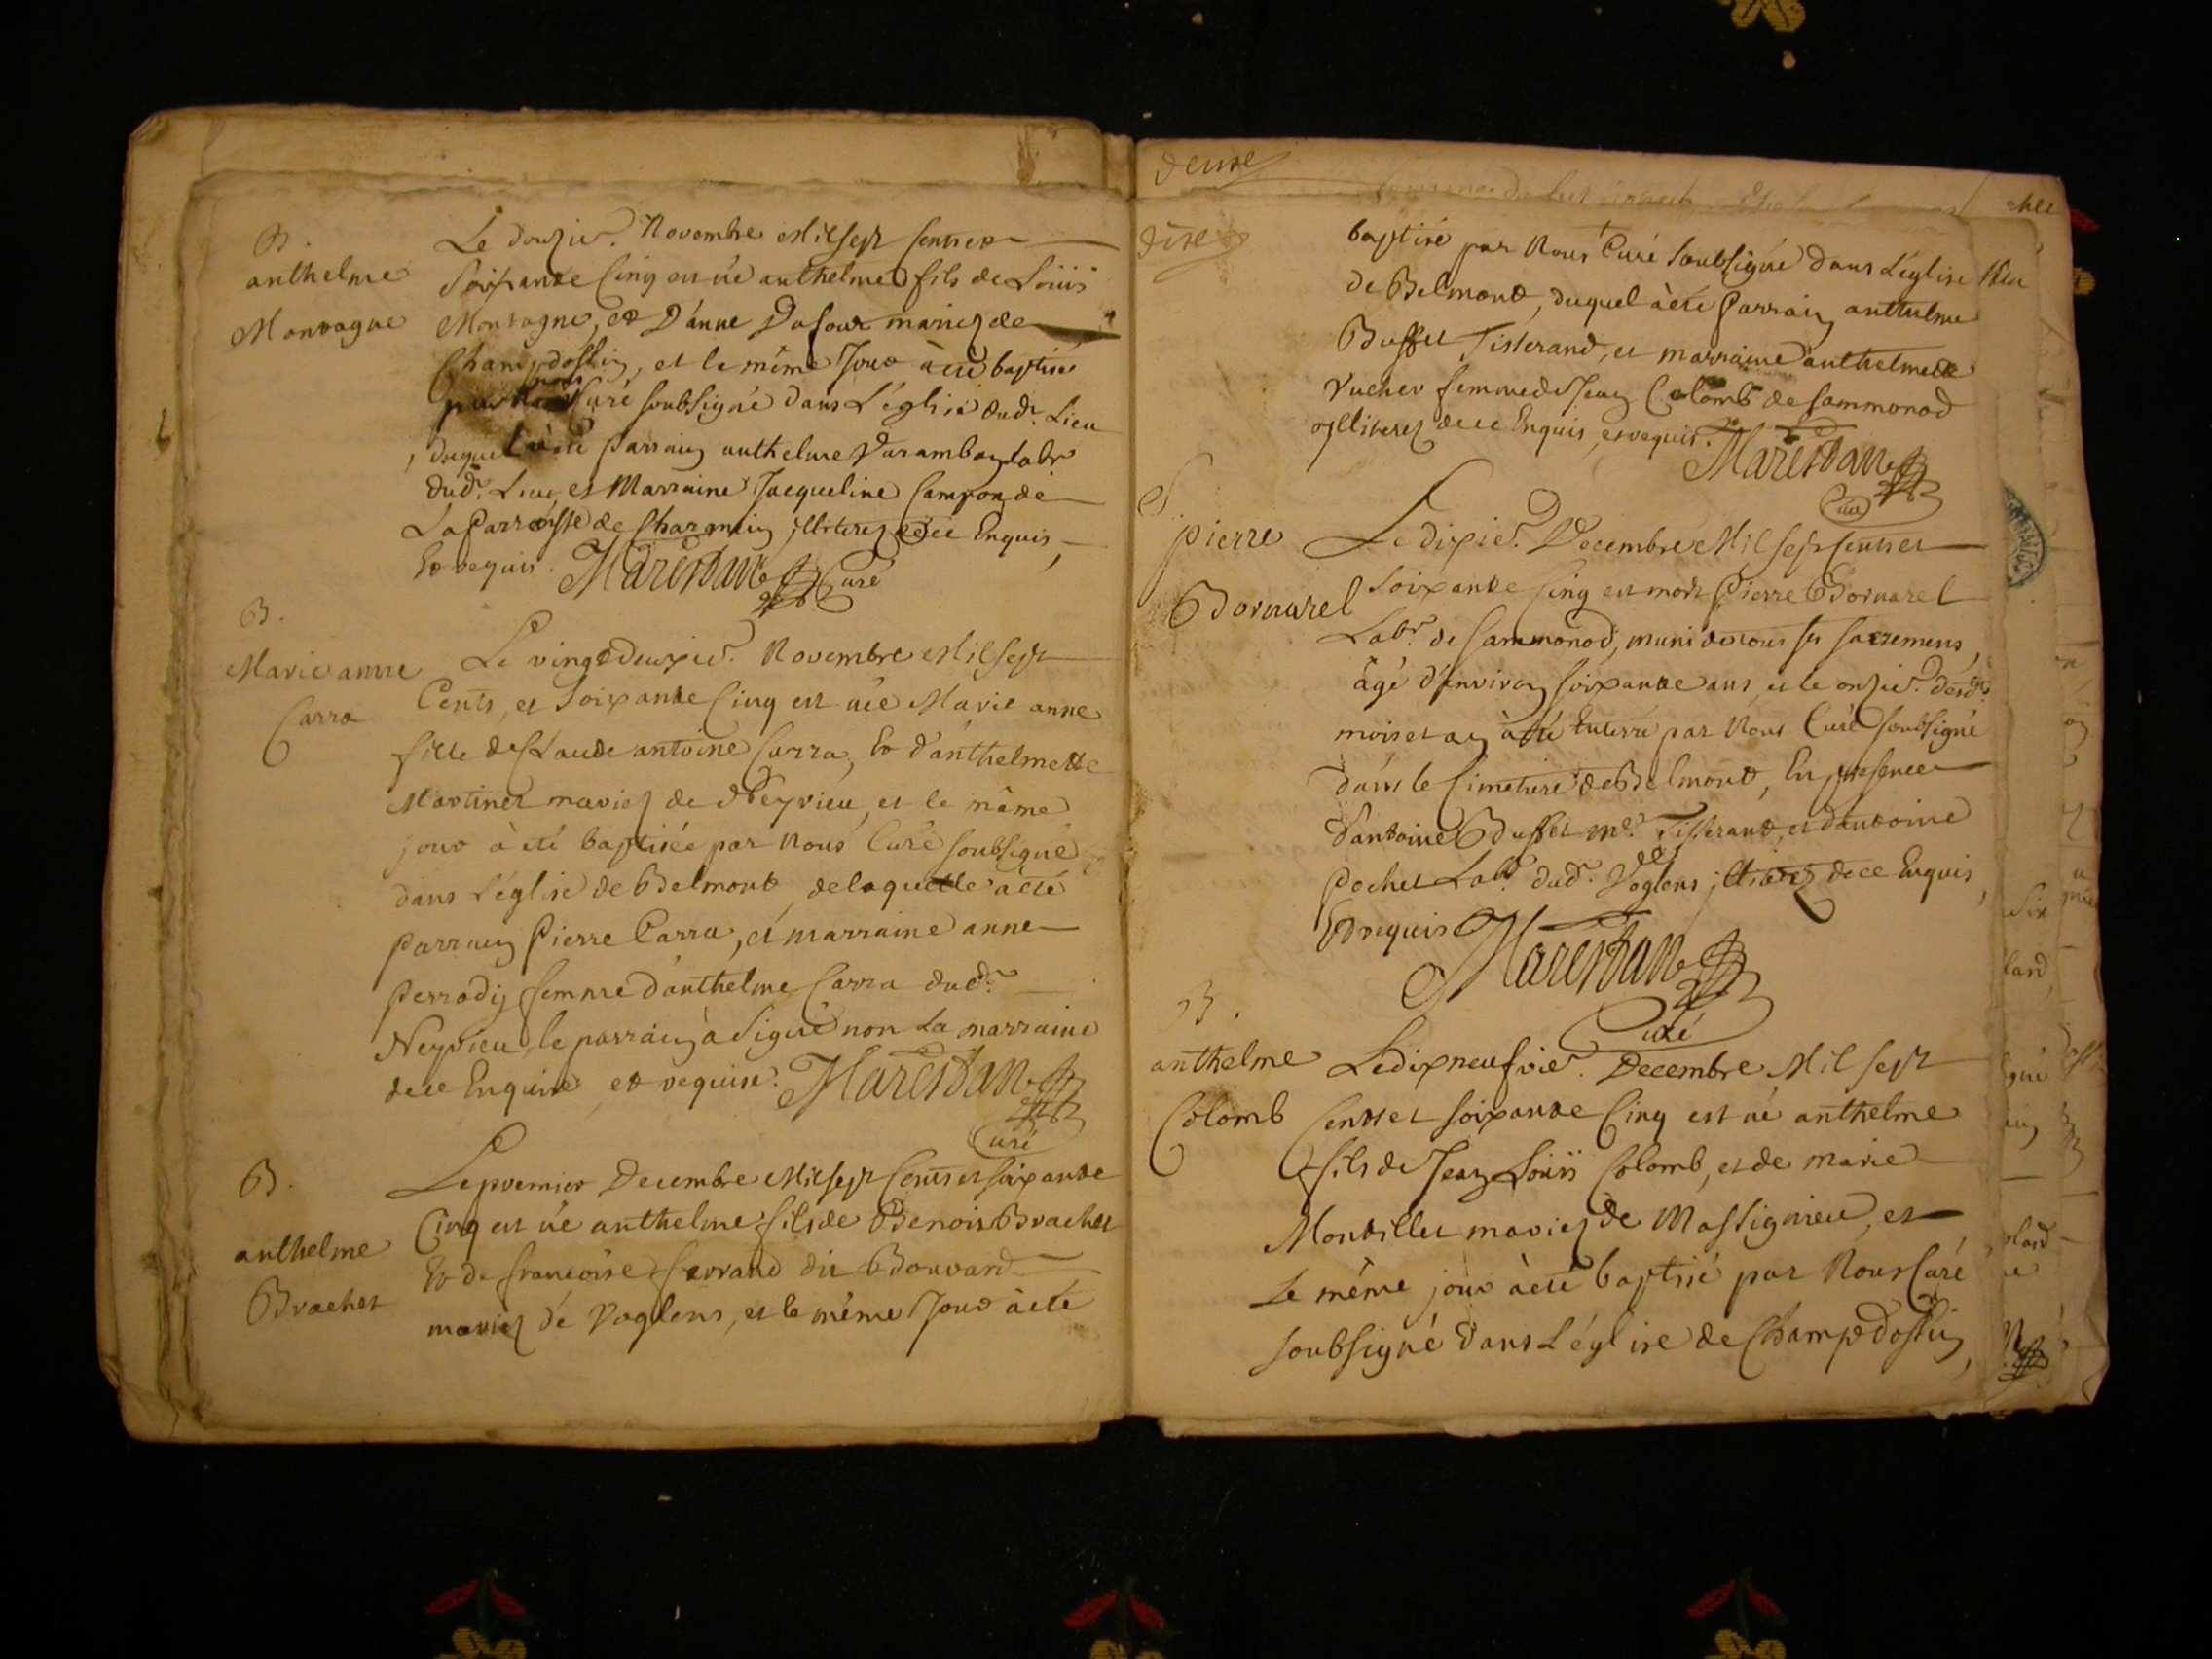 B.
anthelme
Montagne
Le douzie. Novembre Mil sept cents et
soixante Cinq est né anthelme fils de Loüis
Montagne, et D'anne Dufour mariez de
Champdossin, et le même Jour à été baptisé
par nous Curé soubsigné dans L'église dud. Lieu
, duquel à été parrain anthelme Varambon labr
dud. Lieu, et Marraine Jacqueline Campon de
La Parroisse de Charancin jlliterez de ce Enquis,
Et requis. Marestan Curé
B.
Marie anne
Carra
Le vingt deuxie. Novembre Mil sept
Cents, et Soixante Cinq est née Marie anne
fille de Claude antoine Carra, Et d'anthelmette
Martinet mariez de Neyrieu, et le même
jour à été baptisée par Nous Curé soubsigné,
dans L'église de Belmont, de laquelle à été
parrain Pierre Carra, et marraine anne
Perrodin femme d'anthelme Carra dud.
Neyrieu, le parrain à signé non La marraine
de ce Enquise et requise. Marestan
Curé
B.
anthelme
Brachet
Le premier Decembre Mil sept Cents et soixante
Cinq est né anthelme fils de Benoit Brachet
Et de francoise ferrand dit Bouvard
mariez de Voglens, et le même Jour à été
baptisé par Nous Curé soubsigné dans L'église
de Belmont, duquel à été Parrain anthelme
Buffet Tisserand, et marraine anthelmette
Vucher femme de Jean Colomb de Sammonod
jlliterez de ce Enquis, et requis. Marestan
Curé
S
pierre
Bornarel
Le dixie. Decembre Mil sept Cents et
soixante Cinq est mort Pierre Bornarel
Labr. de Sammonod, muni de tous ses sacremens,
âgé d'environ soixante ans, et le onzie. desd.
mois et an à été Enterré par Nous Curé soubsigné
dans le Cimetiere de Belmont, En presence
d'antoine Buffet me. Tisserant, et d'antoine
Pochet Labr. dud. Voglens jlliterez de ce Enquis,
Et requis Marestan
Curé
B.
anthelme
Colomb
Le dix neufvie. Decembre Mil sept
Cents et soixante Cinq est né anthelme
fils de Jean Loüis Colomb, et de marie
Montillet mariez de Massignieu, et
Le même jour à été baptisé par Nous Curé
soubsigné dans L'église de Champdossin,